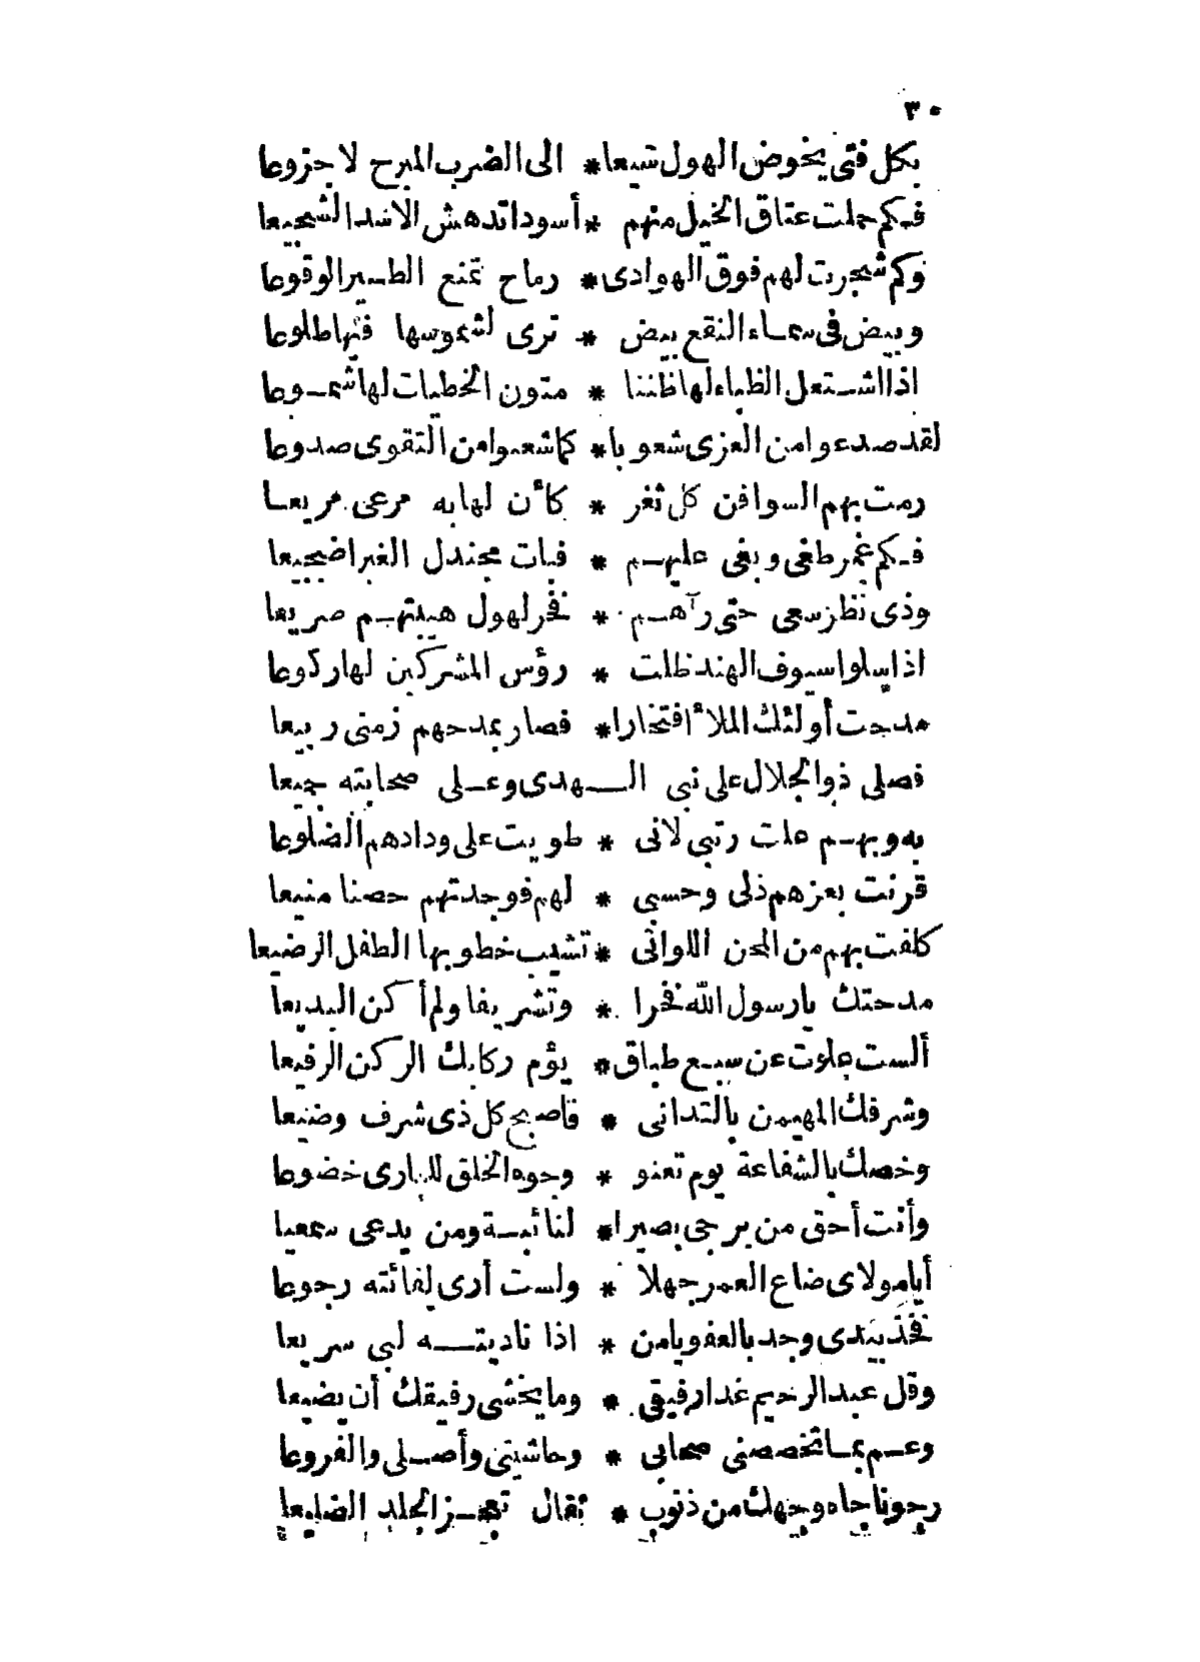 ٣٠
بكل فتى يخوض الهول سعيا * الى الضرب المبرح لا جزوعا
فكم حملت عتاق الخيل منهم * أسودا تدهش الاسد الشجيعا
وكم شجرت لهم فوق الهوادى * رماح تمنع الطير الوقوعا
وبيض فى سماء النقع بيض * ترى لشموسها فيها طلوعا
اذا اشتعل الظباء لها ظننا * متون الخطيات لها شموعا
لقد صدعوا من العزى شعوبا * كما شعبوا من التقوى صدوعا
رمت بهم السوافن كل ثغر * كأن لها به مرعى مريعا
فكم غمر طغى وبغى عليهم * فبات مجندل الغبرا ضجيعا
وذى نظر سعى حتى رآهم * فخر لهول هيبتهم صريعا
اذا سلوا سيوف الهند ظلت * رؤس المشركين لها ركوعا
مدحت أولئك الملأ افتخارا * فصار بمدحهم زمنى ربيعا
فصلى ذو الجلال على نبى الهدى وعلى صحابته جميعا
به وبهم علت رتبى لانى * طويت على ودادهم الضلوعا
قرنت بعزهم ذلى وحسبى * لهم فوجدتهم حصنا منيعا
كلفت بهم من المحن اللواتى * تشيب خطوبها الطفل الرضيعا
مدحتك يا رسول الله فخرا * وتشريفا ولم أكن البديعا
ألست علوت عن سبع طباق * يؤم ركابك الركن الرفيعا
وشرفك المهيمن بالتدانى * فاصبح كل ذى شرف وضيعا
وخصك بالشفاعة يوم تعنو * وجوه الخلق للبارى خضوعا
وأنت أحق من يرجى بصيرا * لنائبة ومن يدعى سمعيا
أيا مولاى ضاع العمر جهلا * ولست أرى لفائته رجوعا
فخذ بيدى وجد بالعفو يا من * اذا ناديته لبى سريعا
وقل عبد الرحيم غدا رفيقى * وما يخشى رفيقك أن يضيعا
وعم بما تخصصنى صحابى * وحاشيتى وأصلى والفروعا
رجونا جاه وجهك من ذنوب * ثقال تعجز الجلد الضليعا